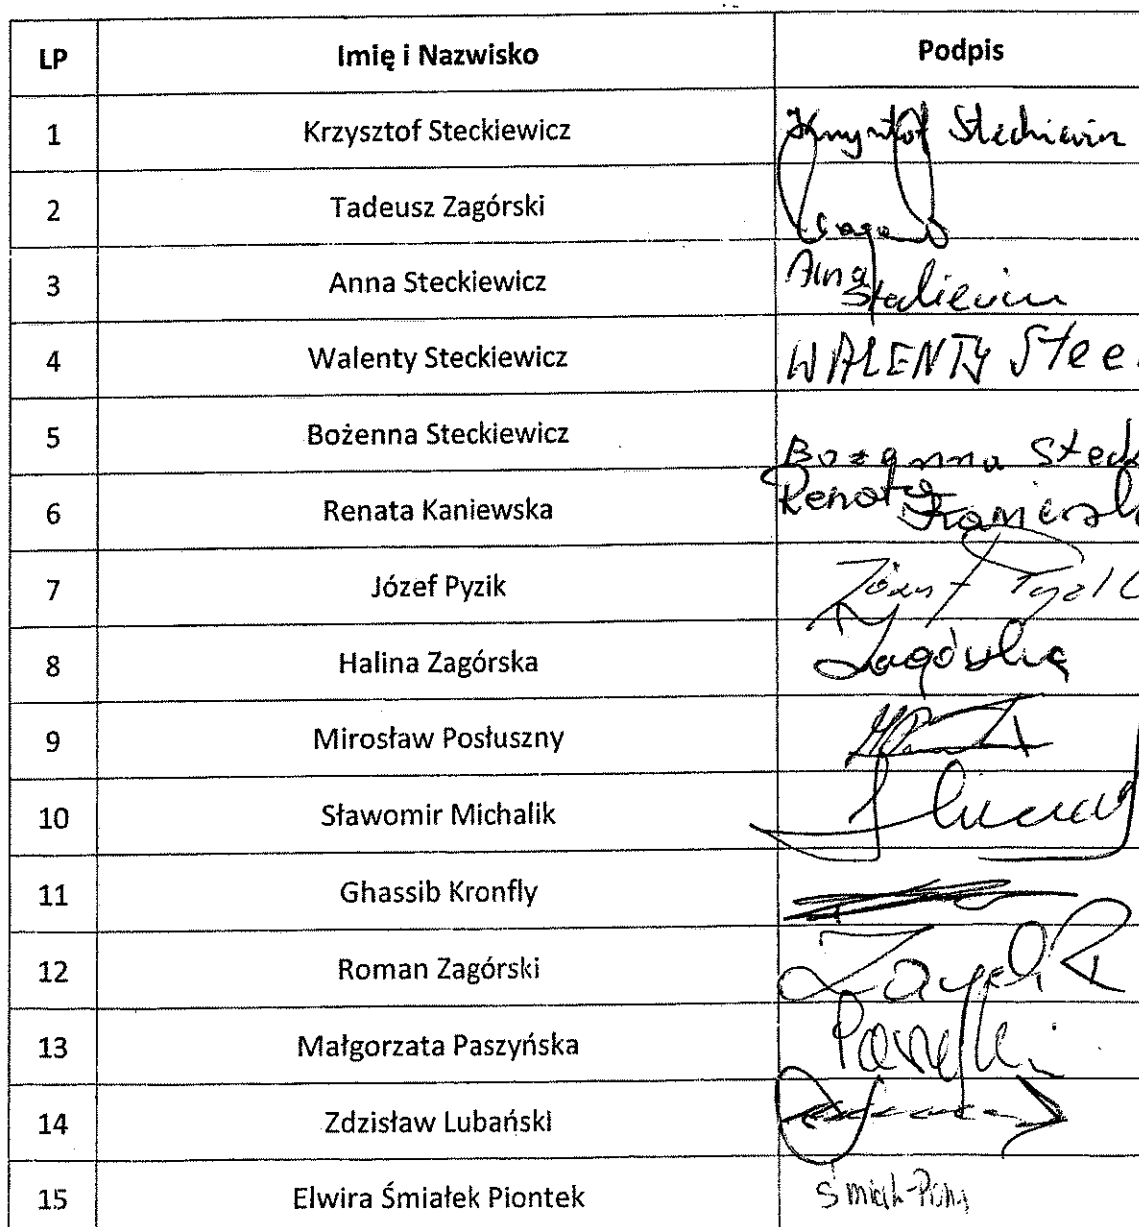 LP Imię i Nazwisko Podpis
1 Krzysztof Steckiewicz Krzysztof Steckiewicz
2 Tadeusz Zagórski
3 Anna Steckiewicz Anna Steckiewicz
4 Walenty Steckiewicz WALENTY Stec
5 Bożenna Steckiewicz Bożenna Steck
6 Renata Kaniewska Renata Kaniewsk
7 Józef Pyzik Józef Pyzik
8 Halina Zagórska Zagórska
9 Mirosław Posłuszny
10 Sławomir Michalik
11 Ghassib Kronfly
12 Roman Zagórski
13 Małgorzata Paszyńska
14 Zdzisław Lubański
15 Elwira Śmiałek Piontek